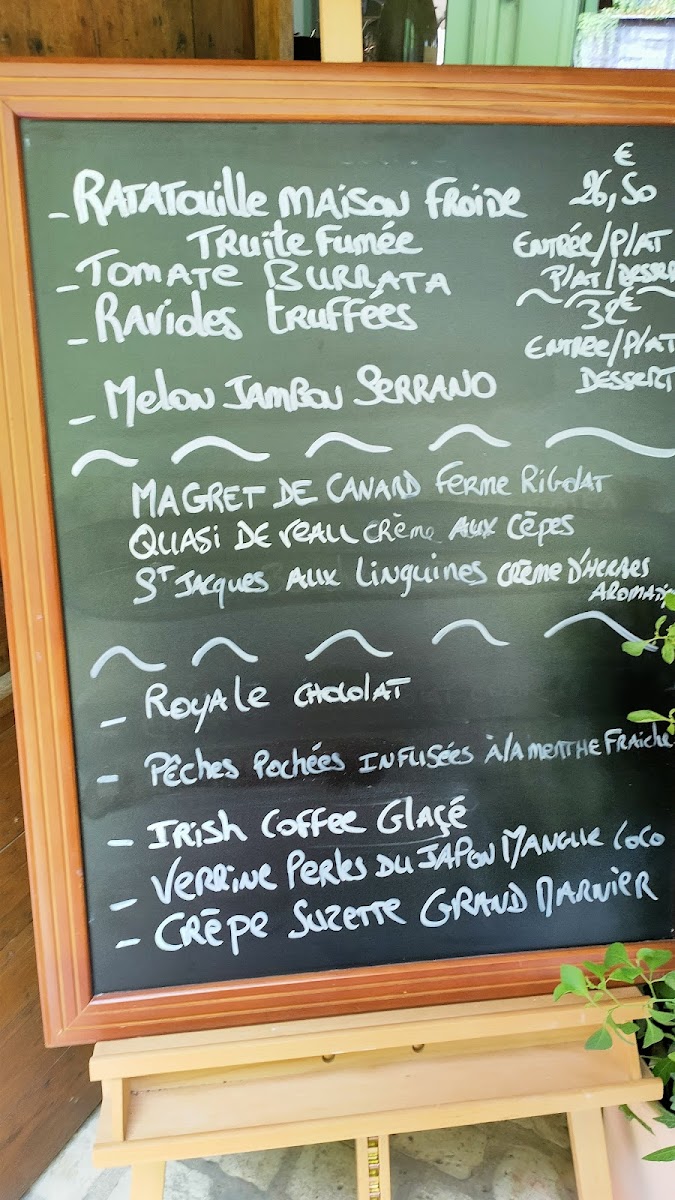 €
- RATATOUILLE MAISON FROIDE 26,50
TRUITE FUMÉE ENTRÉE/PLAT
- TOMATE BURRATA PLAT/DESSER
- RAVIOLES TRUFFÉES 32€
ENTREE/PLAT
DESSERT
- MELON JAMBON SERRANO
MAGRET DE CANARD FERME RIGOLAT
QUASI DE VEAU CRÈME AUX CÊPES
ST JACQUES AUX LINGUINES CRÈME D'HERBES
AROMATI
- ROYALE CHOCOLAT
- PÊCHES POCHÉES INFUSÉES À LA MENTHE FRAICHE
- IRISH COFFEE GLAÇÉ
- VERRINE PERLES DU JAPON MANGUE COCO
- CRÊPE SUZETTE GRAND MARNIER